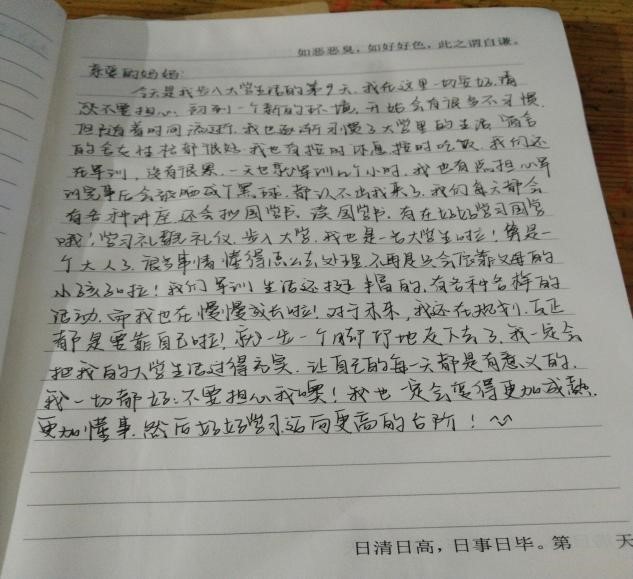 如恶恶臭，如好好色，此之谓自谦。
亲爱的妈妈：
今天是我步入大学生活的第9天，我在这里一切安好，请
您不要担心，初到一个新的环境，开始会有很多不习惯
但随着时间流逝，我也逐渐习惯了大学里的生活，宿舍
的舍友性格都很好，我也有按时休息，按时吃饭，我们还
在军训，没有很累，一天也就军训几个小时，我也有点担心军
训完毕后会被晒成个黑球，都认不出我来了，我们每天都会
有各种讲座，还会抄国学书，读国学书，有在好好学习国学
哦！学习礼貌礼仪，步入大学，我也是一名大学生啦！算是一
个大人了，很多事情懂得怎么去处理，不再是只会依靠父母的
小孩子啦！我们军训生活还挺丰富的，有各种各样的
活动，而我也在慢慢成长啦！对于未来，我还在规划，反正
都是要靠自己啦！一步一个脚印地走下去了，我一定会
把我的大学生活过得充实，让自己的每一天都是有意义的，
我一切都好，不要担心我噢！我也一定会变得更加成熟，
更加懂事，然后好好学习，迈向更高的台阶！
日清日高，日事日毕。第 天